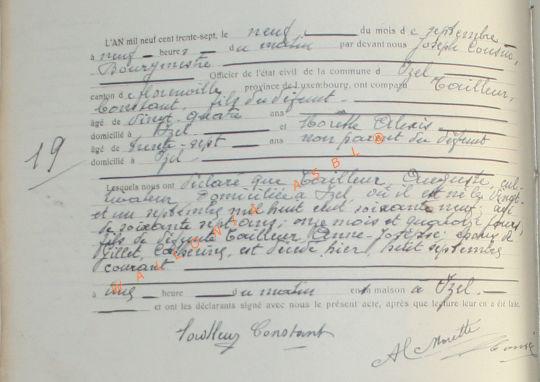 L'AN mil neuf cent trente-sept, le neuf du mois de septembre
à neuf heures du matin par devant nous Joseph
Bourgmestre
Officier de l'état civil de la commune d Izel
canton de Florenville province de Luxembourg, ont comparu Tailleur,
Constant, fils du défunt
âgé de vingt quatre ans
domicilié à Izel et Morette Alexis
âgé de trente-sept ans non parent du défunt
domicilié à Izel
19
Lesquels nous ont déclaré que Tailleur, Auguste, cul-
tivateur, domicilié à Izel, où il est né le vingt
et un septembre mil huit cent soixante neuf, âgé
de soixante sept ans, onze mois et jours,
fils de Tailleur Anne-Josèphe, époux de
Gillet, est décédé hier, huit septembre
courant
à heure du matin en maison à Izel.
et ont les déclarants signé avec nous le présent acte, après que lecture leur en a été faite.
Constant
Al Morette
WALLONIA ASBL ©